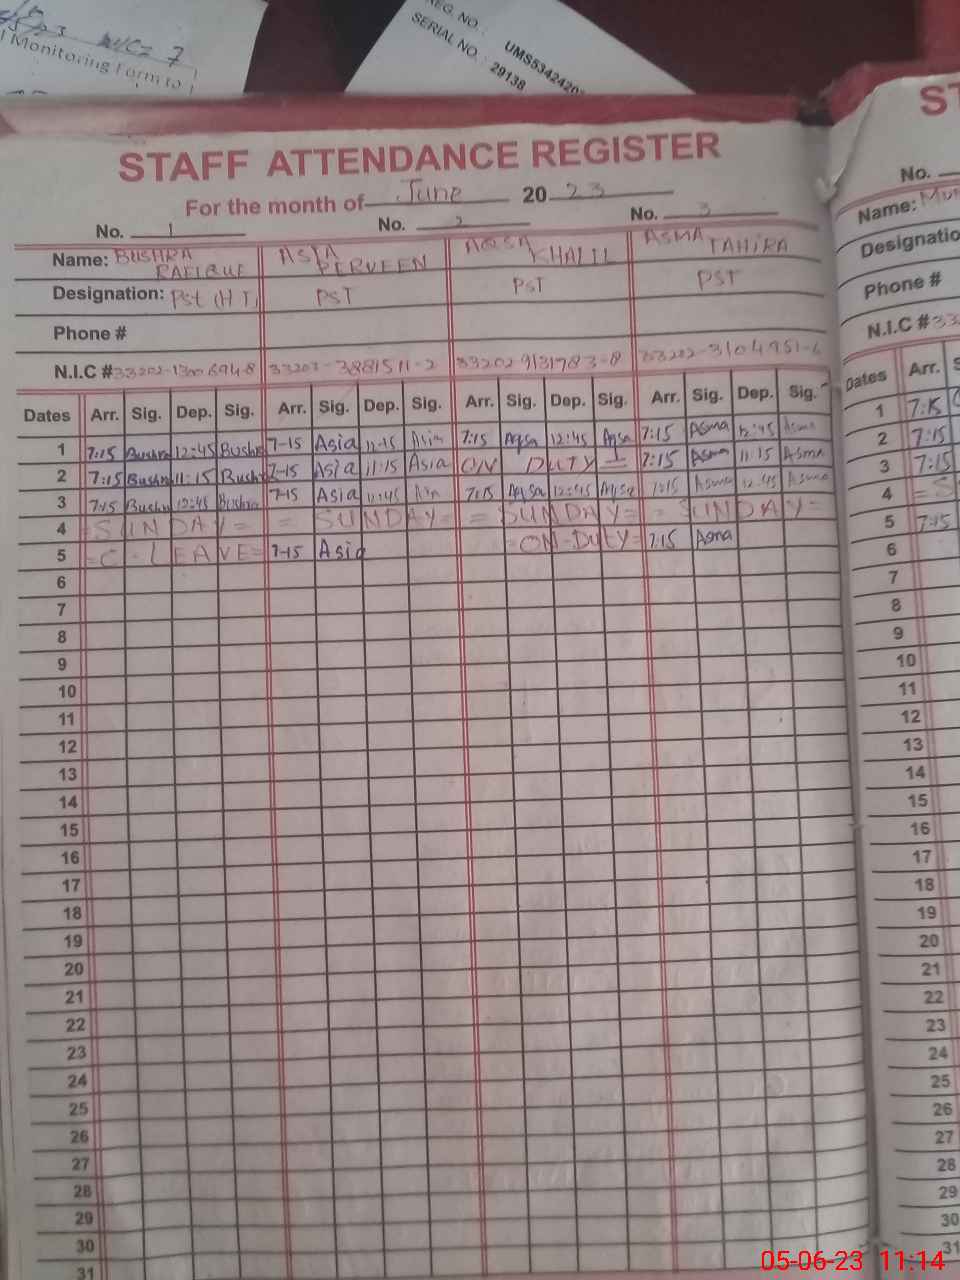 MVCZ 7
l Monitoring Form to
REG. NO. :
SERIAL NO. : UMS5342420
29138
STAFF ATTENDANCE REGISTER
For the month of June 20 23
No. 1 No. 2 No. 3
Name: BUSHRA RAFIQUE ASIA PERVEEN AQSA KHALIL ASMA TAHIRA
Designation: PST (H T) PST PST PST
Phone #
N.I.C # 33202-1300694-8 33203-3881511-2 33202 9131783-8 33202-3104951-6
Dates Arr. Sig. Dep. Sig. Arr. Sig. Dep. Sig. Arr. Sig. Dep. Sig. Arr. Sig. Dep. Sig.
1 7:15 Bushra 12:45 Bushra 7-15 Asia 12-45 Asia 7:15 Aqsa 12:45 Aqsa 7:15 Asma 12:45 Asma
2 7:15 Bushra 11:15 Bushra 7-15 Asia 11:15 Asia ON DUTY 7:15 Asma 11:15 Asma
3 7:15 Bushra 12:45 Bushra 7-15 Asia 12:45 Asia 7:15 Aqsa 12:45 Aqsa 7:15 Asma 12:45 Asma
4 = SUNDAY = = SUNDAY = = SUNDAY = = SUNDAY =
5 = C. LEAVE = 7-15 Asia = ON-DUTY = 7:15 Asma
6
7
8
9
10
11
12
13
14
15
16
17
18
19
20
21
22
23
24
25
26
27
28
29
30
31
ST
No.
Name: Mu
Designatio
Phone #
N.I.C # 33
Dates Arr. S
1 7:15
2 7:15
3 7:15
4 = S
5 7:15
6
7
8
9
10
11
12
13
14
15
16
17
18
19
20
21
22
23
24
25
26
27
28
29
30
31
05-06-23 11:14